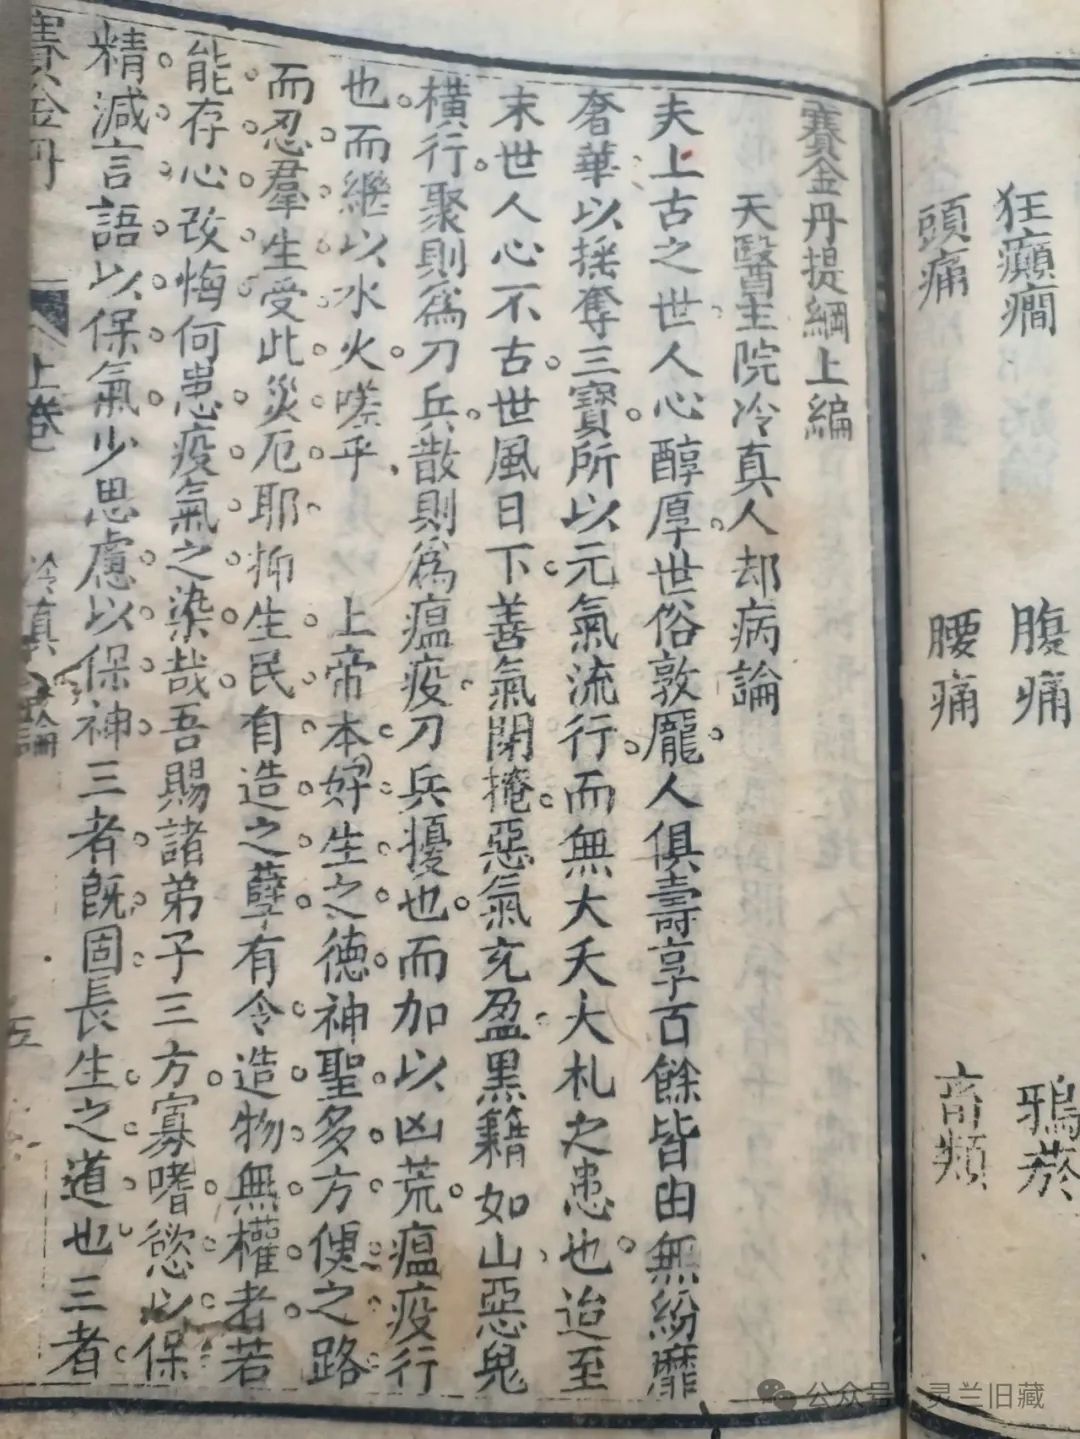 狂癲癇 腹痛 鴉菸
頭痛 腰痛 畜類
賽金丹提綱上編
天醫主院冷真人却病論
夫上古之世人心醇厚世俗敦龐人俱壽享百餘皆由無紛靡
奢華以搖奪三寶所以元氣流行而無大夭大札之患也迨至
末世人心不古世風日下善氣閉掩惡氣充盈黑籍如山惡鬼
橫行聚則為刀兵散則為瘟疫刀兵擾也而加以凶荒瘟疫行
也而繼以水火嗟乎 上帝本好生之德神聖多方便之路
而忍羣生受此災厄耶抑生民有造之孽有令造物無權者若
能存心改悔何患疫氣之染哉吾賜諸弟子三方寡嗜慾以保
精減言語以保氣少思慮以保神三者既固長生之道也三者
賽金丹 上卷 冷真人論 五
公众号 灵兰旧藏